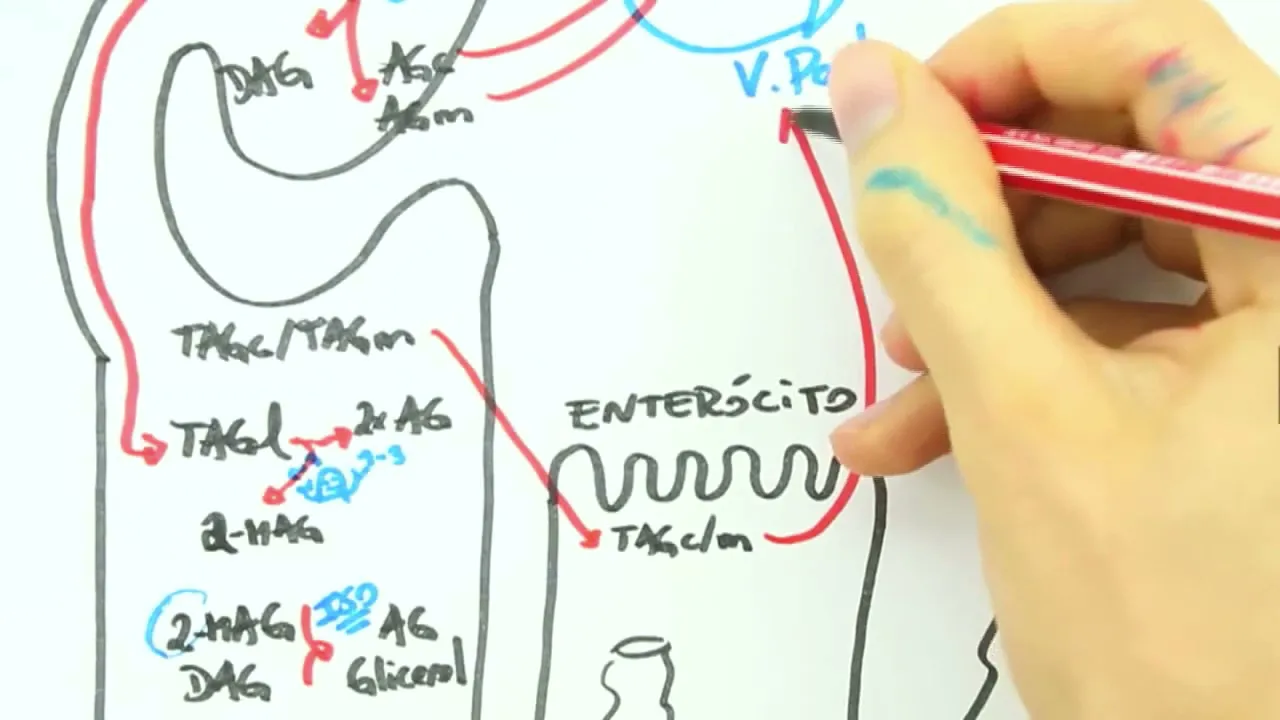 DAG
AGc
AGm
V. Po
TAGc/TAGm
TAGl
2x AG
2-3
2-MAG
ENTERÓCITO
TAGc/m
2-MAG
ISO
AG
DAG
Glicerol